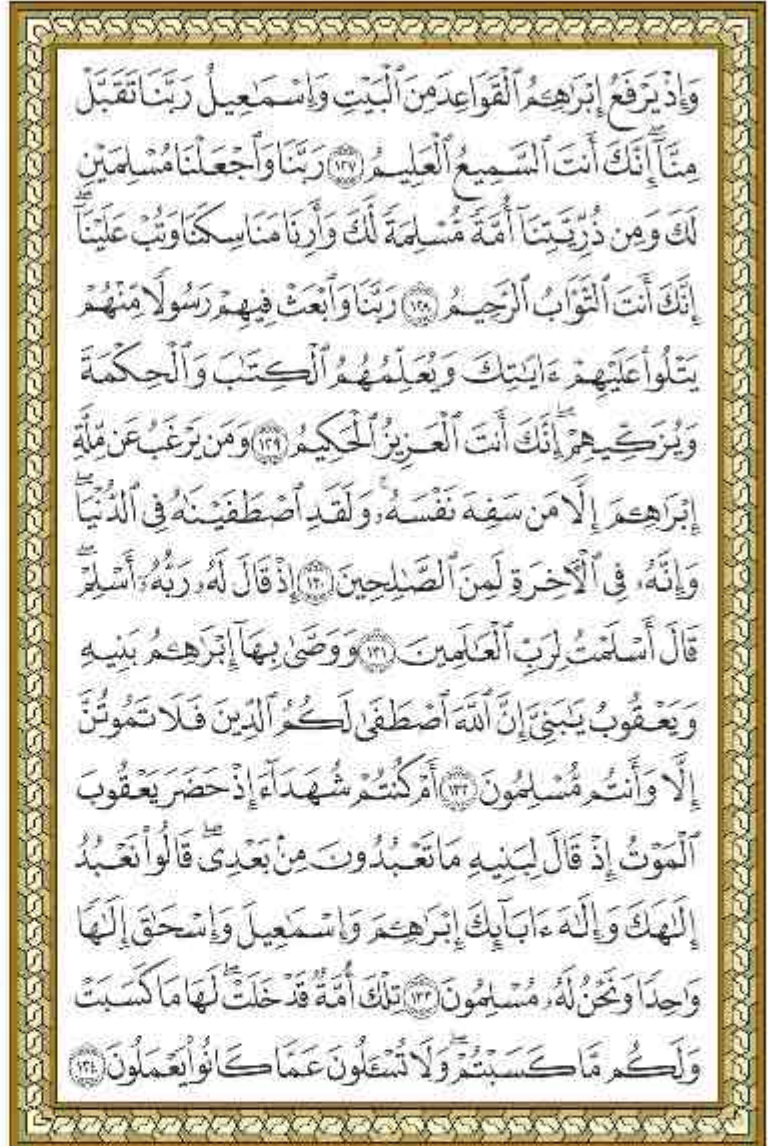 وَإِذْ يَرْفَعُ إِبْرَٰهِـۧمُ ٱلْقَوَاعِدَ مِنَ ٱلْبَيْتِ وَإِسْمَٰعِيلُ رَبَّنَا تَقَبَّلْ
مِنَّآ ۖ إِنَّكَ أَنتَ ٱلسَّمِيعُ ٱلْعَلِيمُ ١٢٧ رَبَّنَا وَٱجْعَلْنَا مُسْلِمَيْنِ
لَكَ وَمِن ذُرِّيَّتِنَآ أُمَّةً مُّسْلِمَةً لَّكَ وَأَرِنَا مَنَاسِكَنَا وَتُبْ عَلَيْنَآ ۖ
إِنَّكَ أَنتَ ٱلتَّوَّابُ ٱلرَّحِيمُ ١٢٨ رَبَّنَا وَٱبْعَثْ فِيهِمْ رَسُولًا مِّنْهُمْ
يَتْلُوا۟ عَلَيْهِمْ ءَايَٰتِكَ وَيُعَلِّمُهُمُ ٱلْكِتَٰبَ وَٱلْحِكْمَةَ
وَيُزَكِّيهِمْ ۚ إِنَّكَ أَنتَ ٱلْعَزِيزُ ٱلْحَكِيمُ ١٢٩ وَمَن يَرْغَبُ عَن مِّلَّةِ
إِبْرَٰهِـۧمَ إِلَّا مَن سَفِهَ نَفْسَهُۥ ۚ وَلَقَدِ ٱصْطَفَيْنَٰهُ فِى ٱلدُّنْيَا ۖ
وَإِنَّهُۥ فِى ٱلْـَٔاخِرَةِ لَمِنَ ٱلصَّٰلِحِينَ ١٣٠ إِذْ قَالَ لَهُۥ رَبُّهُۥٓ أَسْلِمْ ۖ
قَالَ أَسْلَمْتُ لِرَبِّ ٱلْعَٰلَمِينَ ١٣١ وَوَصَّىٰ بِهَآ إِبْرَٰهِـۧمُ بَنِيهِ
وَيَعْقُوبُ يَٰبَنِىَّ إِنَّ ٱللَّهَ ٱصْطَفَىٰ لَكُمُ ٱلدِّينَ فَلَا تَمُوتُنَّ
إِلَّا وَأَنتُم مُّسْلِمُونَ ١٣٢ أَمْ كُنتُمْ شُهَدَآءَ إِذْ حَضَرَ يَعْقُوبَ
ٱلْمَوْتُ إِذْ قَالَ لِبَنِيهِ مَا تَعْبُدُونَ مِنۢ بَعْدِى ۖ قَالُوا۟ نَعْبُدُ
إِلَٰهَكَ وَإِلَٰهَ ءَابَآئِكَ إِبْرَٰهِـۧمَ وَإِسْمَٰعِيلَ وَإِسْحَٰقَ إِلَٰهًا
وَٰحِدًا وَنَحْنُ لَهُۥ مُسْلِمُونَ ١٣٣ تِلْكَ أُمَّةٌ قَدْ خَلَتْ ۖ لَهَا مَا كَسَبَتْ
وَلَكُم مَّا كَسَبْتُمْ ۖ وَلَا تُسْـَٔلُونَ عَمَّا كَانُوا۟ يَعْمَلُونَ ١٣٤